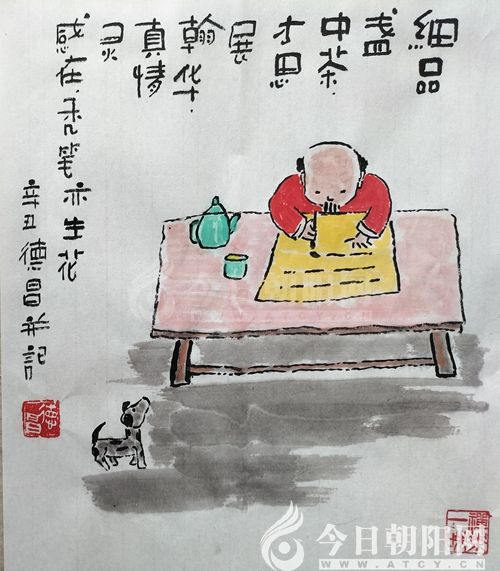 細品
盏
中茶.
才思
展
翰华.
真情
灵
感在.秃笔亦生花
辛丑德昌并記
德昌
今日朝阳网
WWW.ATCY.CN